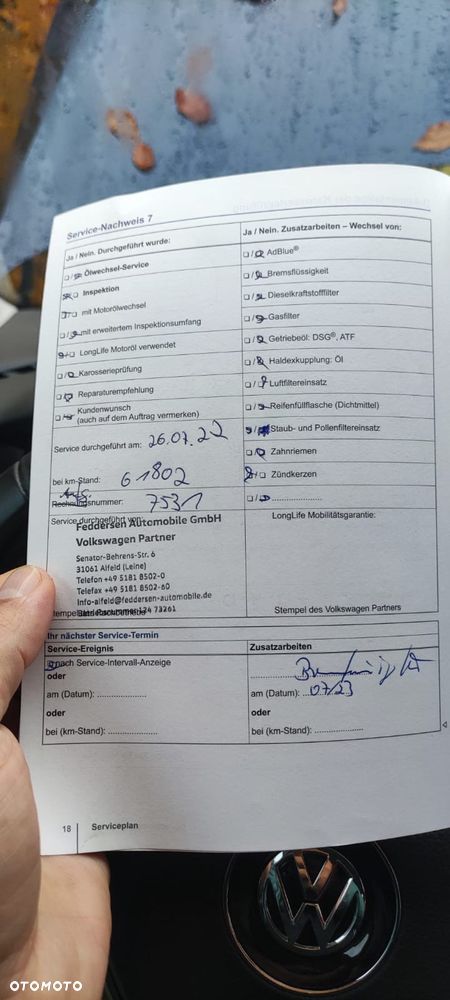 Service-Nachweis 7
Ja / Nein. Durchgeführt wurde:
Ölwechsel-Service
Inspektion
mit Motorölwechsel
mit erweitertem Inspektionsumfang
LongLife Motoröl verwendet
Karosserieprüfung
Reparaturempfehlung
Kundenwunsch
(auch auf dem Auftrag vermerken)
Service durchgeführt am: 26.07.22
bei km-Stand: 61802
Rechnungsnummer: 7531
Service durchgeführt von:
Feddersen Automobile GmbH
Volkswagen Partner
Senator-Behrens-Str. 6
31061 Alfeld (Leine)
Telefon +49 5181 8502-0
Telefax +49 5181 8502-60
Info-alfeld@feddersen-automobile.de
Ja / Nein. Zusatzarbeiten – Wechsel von:
AdBlue®
Bremsflüssigkeit
Dieselkraftstofffilter
Gasfilter
Getriebeöl: DSG®, ATF
Haldexkupplung: Öl
Luftfiltereinsatz
Reifenfüllflasche (Dichtmittel)
Staub- und Pollenfiltereinsatz
Zahnriemen
Zündkerzen
LongLife Mobilitätsgarantie:
Stempel des Volkswagen Partners
Ihr nächster Service-Termin
Service-Ereignis
nach Service-Intervall-Anzeige
oder
am (Datum): .....................
oder
bei (km-Stand): .....................
Zusatzarbeiten
am (Datum): 07/23
oder
bei (km-Stand): .....................
18 Serviceplan
OTOMOTO